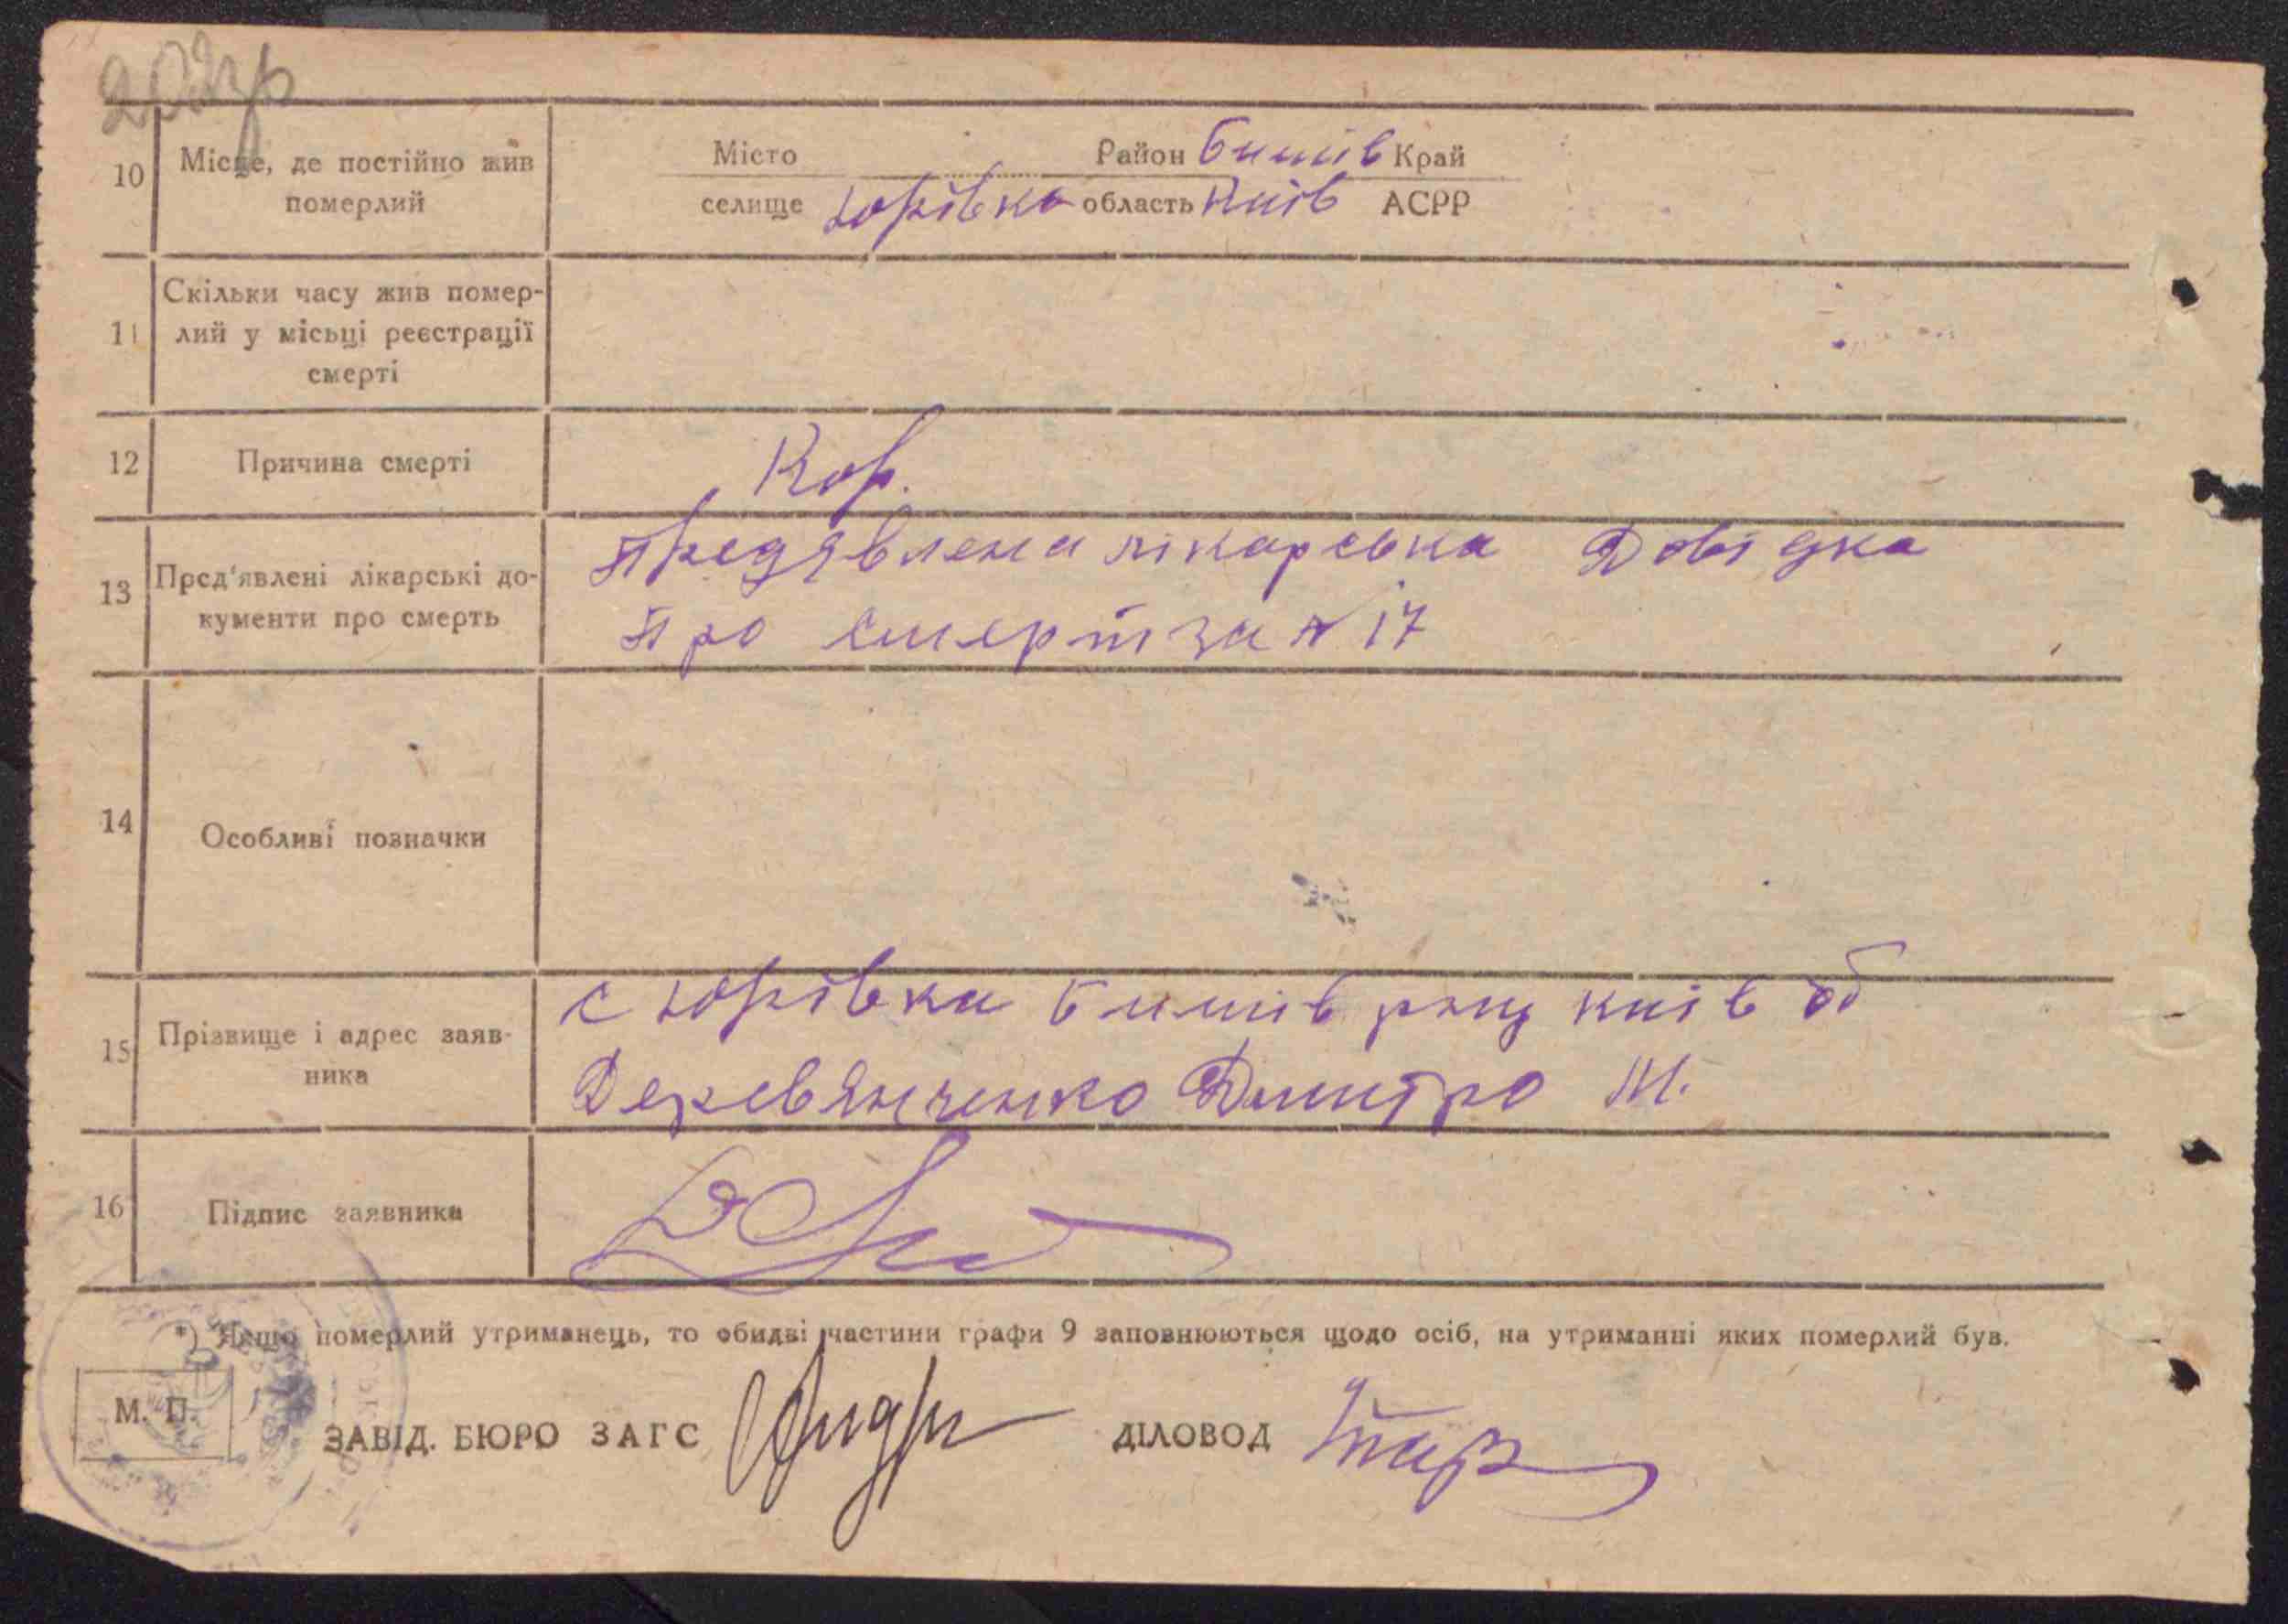 202зр
10 Місце, де постійно жив померлий
Місто Район Бишів Край
селище Юрівка область Київ АСРР
11 Скільки часу жив помер-
лий у місьці реєстрації
смерті
12 Причина смерті Кор.
13 Пред'явлені лікарські до-
кументи про смерть
Предявлена лікарська Довідка
Про смерт за № 17
14 Особливі позначки
15 Прізвище і адрес заяв-
ника
с Юрівка Бишів рну київ об
Деревянченко Дмитро М.
16 Підпис заявника
*) Якщо померлий утриманець, то обидві частини графи 9 заповнюються щодо осіб, на утриманні яких померлий був.
М. П.
ЗАВІД. БЮРО ЗАГС ДІЛОВОД